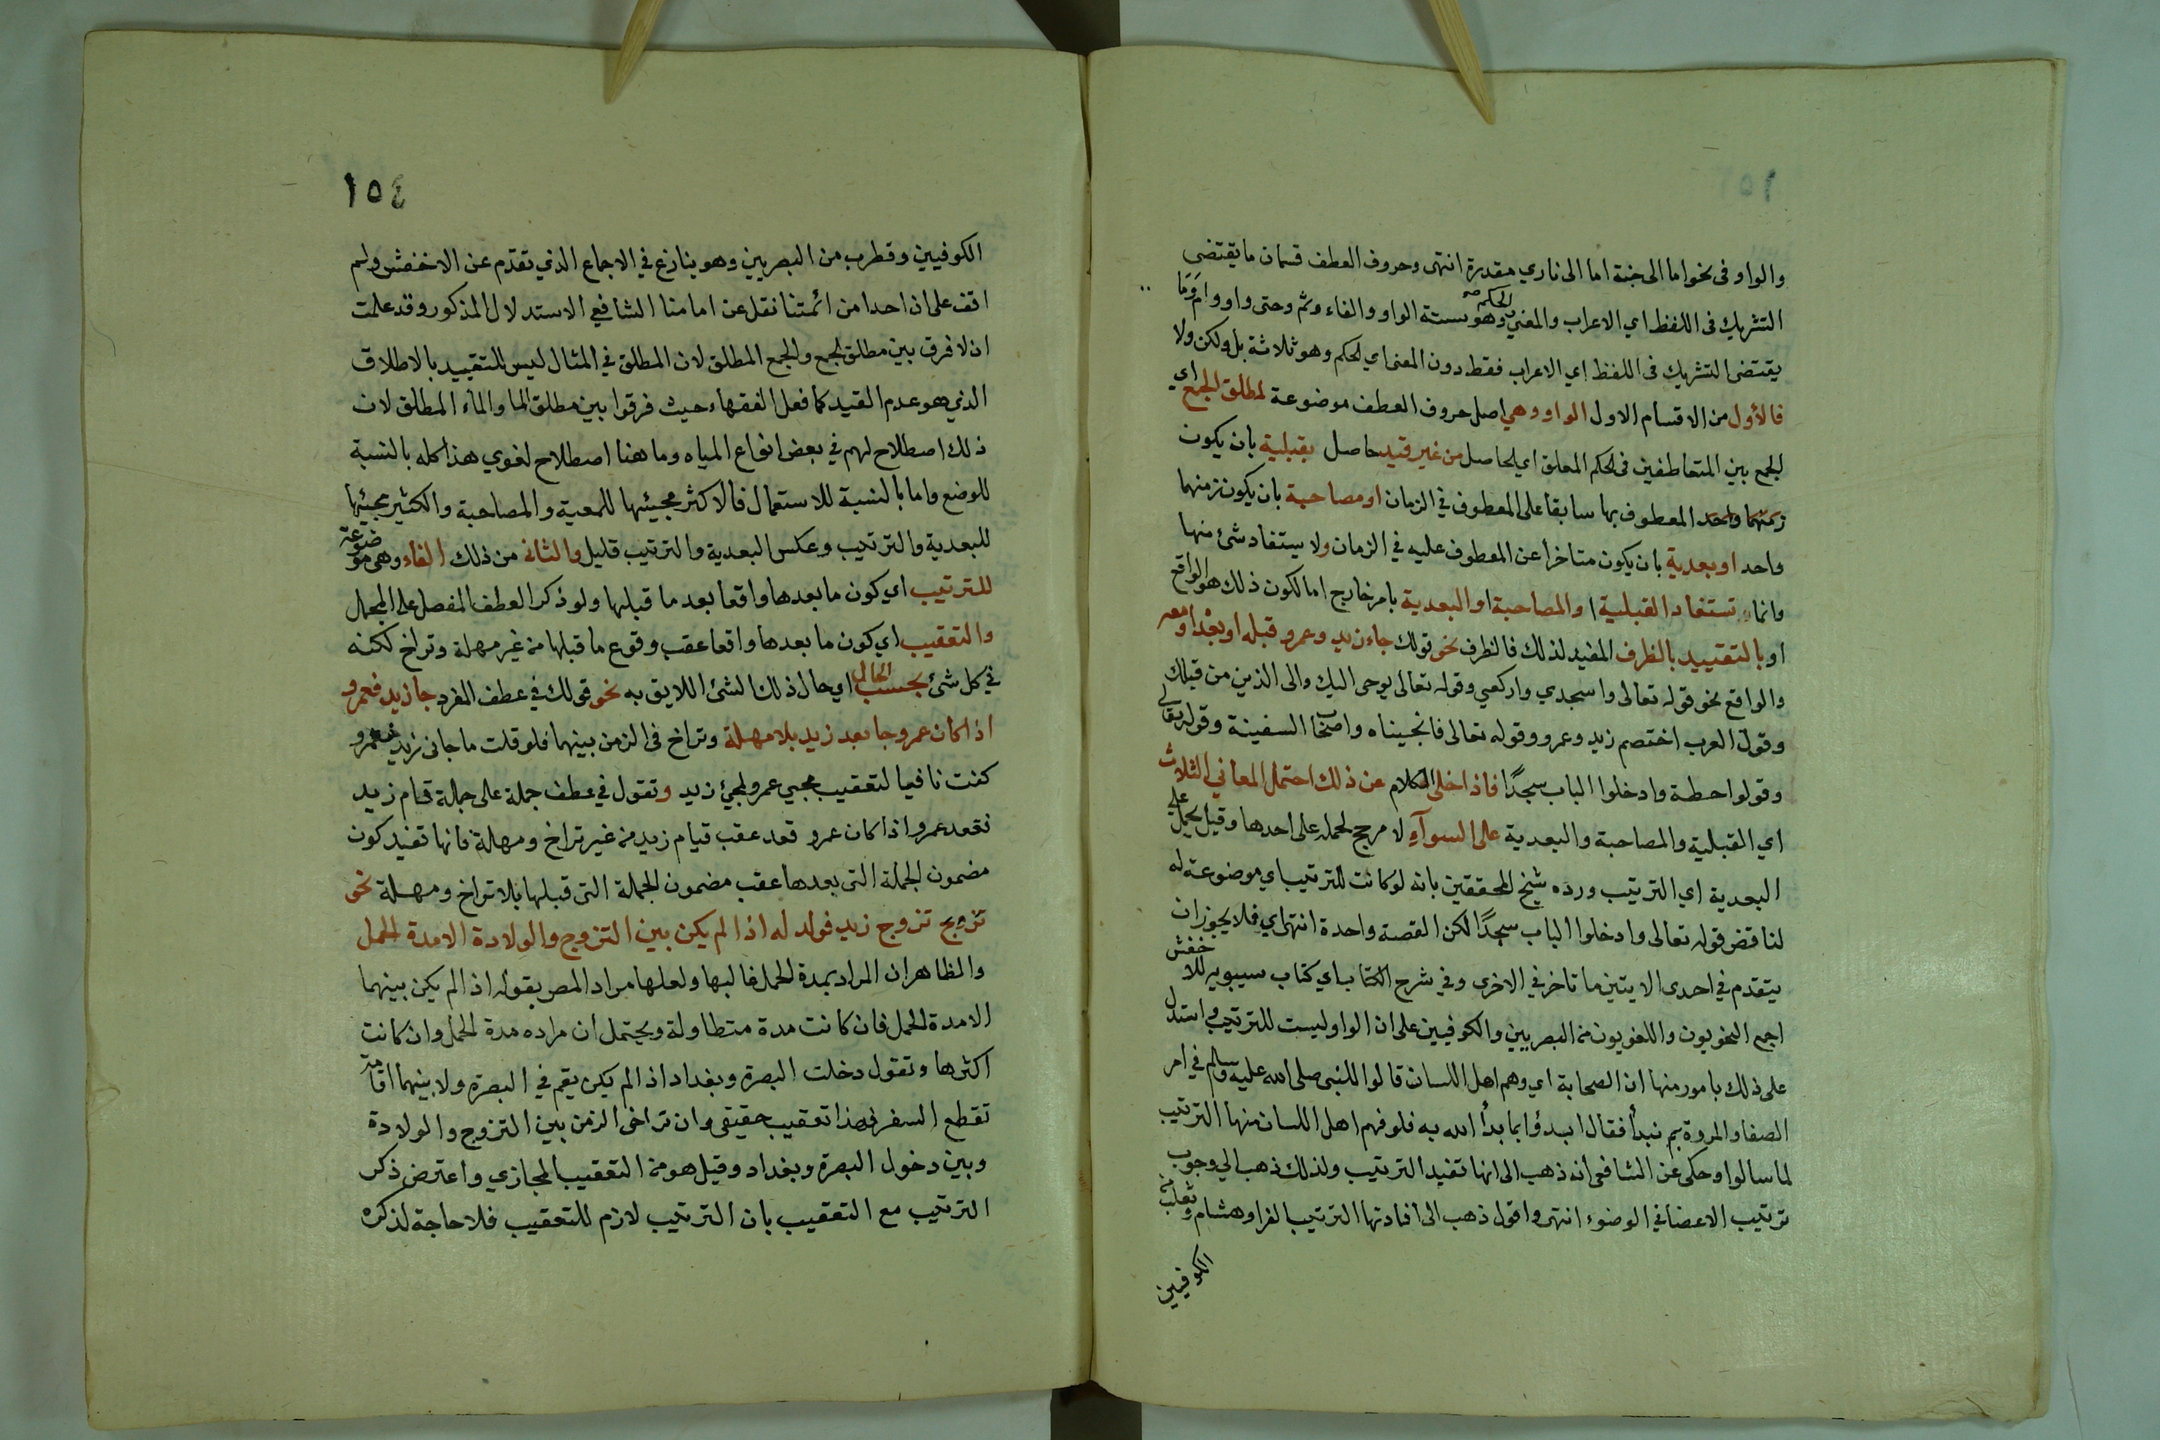 والواو فى نحو اما الى جنة اما الى نار اي مقدرة انتهى وحروف العطف قسمان ما يقتضى
التشريك فى اللفظ اي الاعراب والمعنى اي الحكم وهو ستة الواو والفاء وثم وحتى واو وام وما
يقتضى التشريك فى اللفظ اي الاعراب فقط دون المعنى اي الحكم وهو ثلاثة بل ولكن ولا
فالأول من الاقسام الاول الواو وهي اصل حروف العطف موضوعة لمطلق الجمع اي
الجمع بين المتعاطفين فى الحكم المعلق اي الحاصل من غير قيد حاصل بقبلية بان يكون
المعطوف بها سابقا على المعطوف في الزمان او مصاحبة بان يكون زمنهما
واحد او بعدية بان يكون متاخرا عن المعطوف عليه في الزمان ولا يستفاد شئ منها
وانما تستفاد القبلية او المصاحبة او البعدية بامر خارج اما لكون ذلك هو الواقع
او بالتقييد بالظرف المفيد لذلك فالظرف نحو قولك جاء زيد وعمرو قبله او بعده او معه
والواقع نحو قوله تعالى واسجدي واركعي وقوله تعالى يوحى اليك والى الذين من قبلك
وقول العرب اختصم زيد وعمرو وقوله تعالى فانجيناه واصحاب السفينة وقوله تعالى
وقولوا حطة وادخلوا الباب سجدًا فاذا خلى الكلام عن ذلك احتمل المعاني الثلاث
اي القبلية والمصاحبة والبعدية على السوآء لا مرجح لحمله على احدها وقيل يحمل على
البعدية اي الترتيب ورده شيخ المحققين بانه لو كانت للترتيب اي موضوعة له
لناقض قوله تعالى وادخلوا الباب سجدًا لكن القصة واحدة انتهى اي فلا يجوز ان
يتقدم في احدى الايتين ما تاخر في الاخرى وفي شرح الكتاب اي كتاب سيبويه للاخفش
اجمع النحويون واللغويون من البصريين والكوفيين على ان الواو ليست للترتيب واستدل
على ذلك بامور منها ان الصحابة اي وهم اهل اللسان قالوا للنبى صلى الله عليه وسلم في امر
الصفا والمروة بم نبدأ فقال ابدؤا بما بدأ الله به فلو فهم اهل اللسان منها الترتيب
لما سالوا وحكى عن الشافعى انه ذهب الى انها تفيد الترتيب ولذلك ذهب الي وجوب
ترتيب الاعضا في الوضوء انتهى واقول ذهب الى افادتها الترتيب الفرا وهشام وثعلب من
الكوفيين
١٥٤
الكوفيين وقطرب من البصريين وهو ينازع في الاجماع الذي تقدم عن الاخفش ولم
اقف على ان احدا من ائمتنا نقل عن امامنا الشافعي الاستدلال المذكور وقد علمت
ان لا فرق بين مطلق الجمع والجمع المطلق لان المطلق في المثال ليس للتقييد بالاطلاق
الذي هو عدم القيد كما فعل الفقهاء حيث فرقوا بين مطلق الما والماء المطلق لان
ذلك اصطلاح لهم في بعض انواع المياه وما هنا اصطلاح لغوي هذا كله بالنسبة
للوضع واما بالنسبة للاستعمال فالاكثر مجيئها للمعية والمصاحبة والكثير مجيئها
للبعدية والترتيب وعكس البعدية والترتيب قليل والثانى من ذلك الفاء وهى موضوعة
للترتيب اي كون ما بعدها واقعا بعد ما قبلها ولو ذكرا لعطف المفصل على المجمل
والتعقيب اي كون ما بعدها واقعا عقب وقوع ما قبلها من غير مهلة وتراخ لكنه
في كل شئ بحسب الحال اي حال ذلك الشئ اللايق به نحو قولك في عطف المفرد جا زيد فعمرو
اذا كان عمرو جا بعد زيد بلا مهلة وتراخ فى الزمن بينهما فلو قلت ما جانى زيد فعمرو
كنت نافيا لتعقيب مجيئ عمرو لمجئ زيد وتقول في عطف جملة على جملة قام زيد
فقعد عمرو اذا كان عمرو قعد عقب قيام زيد من غير تراخ ومهلة فانها تفيد كون
مضمون الجملة التى بعدها عقب مضمون الجملة التى قبلها بلا تراخ ومهلة نحو
تزوج زيد فولد له اذا لم يكن بين التزوج والولادة الا مدة الحمل
والظاهر ان المراد بمدة الحمل غالبها ولعلها مراد المص بقوله اذا لم يكن بينهما
الا مدة الحمل فان كانت مدة متطاولة ويحتمل أن مراده مدة الحمل وان كانت
اكثرها وتقول دخلت البصرة وبغداد اذا لم يكن يقم في البصرة ولا بينهما اقامة
تقطع السفر فى هذا تعقيب حقيقى وان تراخى الزمن بين التزوج والولادة
وبين دخول البصرة وبغداد وقيل هو من التعقيب المجازي واعترض ذكر
الترتيب مع التعقيب بان الترتيب لازم للتعقيب فلا حاجة لذكره